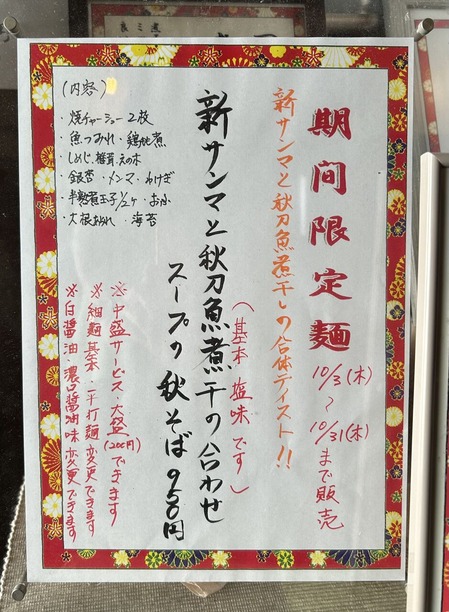 期間限定麺
10/3(木)
〜
10/31(木)
まで販売
新サンマと秋刀魚煮干しの合体テイスト!!
(基本 塩味です)
新サンマと秋刀魚煮干の合わせ
スープの秋そば 950円
(内容)
・焼チャーシュー2枚
・魚つみれ・鶏
しめじ、椎茸、えの木
・銀杏・メンマ・わけぎ
・半熟煮玉子1/2ケ・おふ
・大根おろし・海苔
※中盛サービス・大盛(200円)できます
※細麺基本・平打麺変更できます
※白醤油・濃口醤油味変更できます